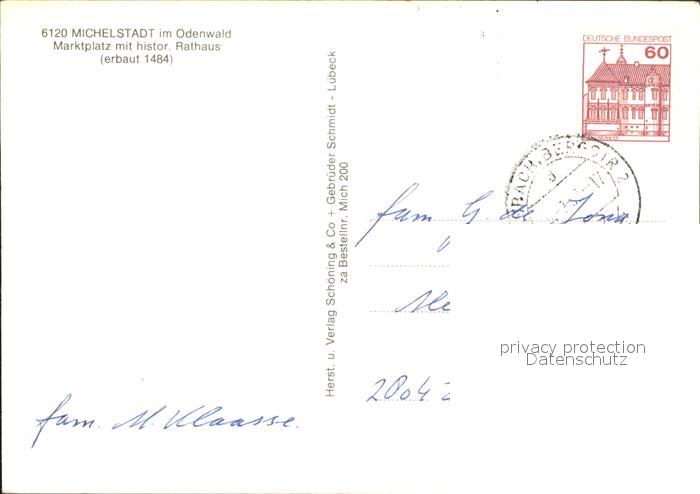 6120 MICHELSTADT im Odenwald
Marktplatz mit histor. Rathaus
(erbaut 1484)
DEUTSCHE BUNDESPOST
60
BERGSTR 2
Herst. u. Verlag Schöning & Co + Gebrüder Schmidt - Lübeck
za Bestellnr. Mich 200
fam G. de Jona
privacy protection
Datenschutz
2804
fam. M. Klaasse.